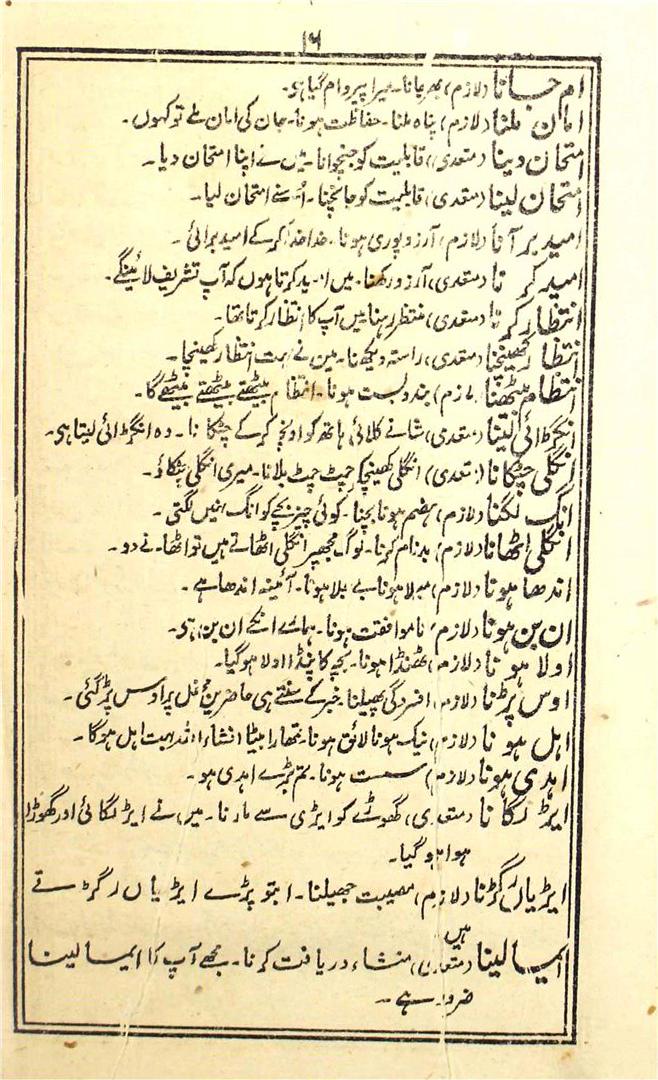 ۱۶
ام جانا (لازم) بھر پانا۔ میرا پیر و ام گیا ہی۔
امان ملنا (لازم) پناہ ملنا۔ حفاظت ہونا۔ جان کی امان ملے تو کہوں۔
امتحان دینا (متعدی) قابلیت کو جنچوانا۔ میں نے اپنا امتحان دیا۔
امتحان لینا (متعدی) قابلیت کو جانچنا۔ اُسنے امتحان لیا۔
امید بر آنا (لازم) آرزو پوری ہونا۔ خدا خدا کرکے امید برآئی۔
امید کرنا (متعدی) آرزو رکھنا۔ میں امید کرتا ہوں کہ آپ تشریف لائینگے۔
انتظار کرنا (متعدی) منتظر رہنا میں آپ کا انتظار کرتا تھا۔
انتظار کھینچنا (متعدی) راستہ دیکھنا۔ مین نے بہت انتظار کھینچا۔
انتظام بیٹھنا (لازم) بندوبست ہونا۔ انتظام بیٹھتے بیٹھتے بیٹھے گا۔
انگڑائی لینا (متعدی) شانے کلائی ہاتھ کو اونچا کرکے چٹکانا۔ وہ انگڑائی لیتا ہی۔
انگلی چٹکانا (متعدی) انگلی کھینچکر چٹ چٹ بلانا۔ میری انگلی چٹکاؤ۔
انگ لگنا (لازم) ہضم ہونا بچنا۔ کوئی چیز بچے کو انگ نہیں لگتی۔
انگلی اٹھانا (لازم) بدنام کرنا۔ لوگ مجھپر انگلی اٹھاتے ہیں تو اٹھانے دو۔
اندھا ہونا (لازم) میلا ہونا بے جلا ہونا۔ آئینہ اندھا ہے۔
ان بن ہونا (لازم) ناموافقت ہونا۔ ہمارے انکے ان بن ہی۔
اولا ہونا (لازم) ٹھنڈا ہونا۔ بچہ کا پنڈا اولا ہو گیا۔
اوس پڑنا (لازم) افسردگی پھیلنا۔ خبر کے سنتے ہی حاضرین محفل پر اوس پڑ گئی۔
اہل ہونا (لازم) نیک ہونا لائق ہونا۔ تمھارا بیٹا انشاء اللہ بہت اہل ہوگا۔
اہدی ہونا (لازم) سست ہونا۔ تم بڑے اہدی ہو۔
ایڑ لگانا (متعدی) گھوڑے کو ایڑی سے مارنا۔ میں نے ایڑ لگائی اور گھوڑا
ہوا ہو گیا۔
ایڑیاں رگڑنا (لازم) مصیبت جھیلنا۔ ابتو پڑے ایڑیاں رگڑتے
ہیں
ایما لینا (متعدی) منشاء دریافت کرنا۔ مجھے آپ کا ایما لینا
ضرور ہے۔